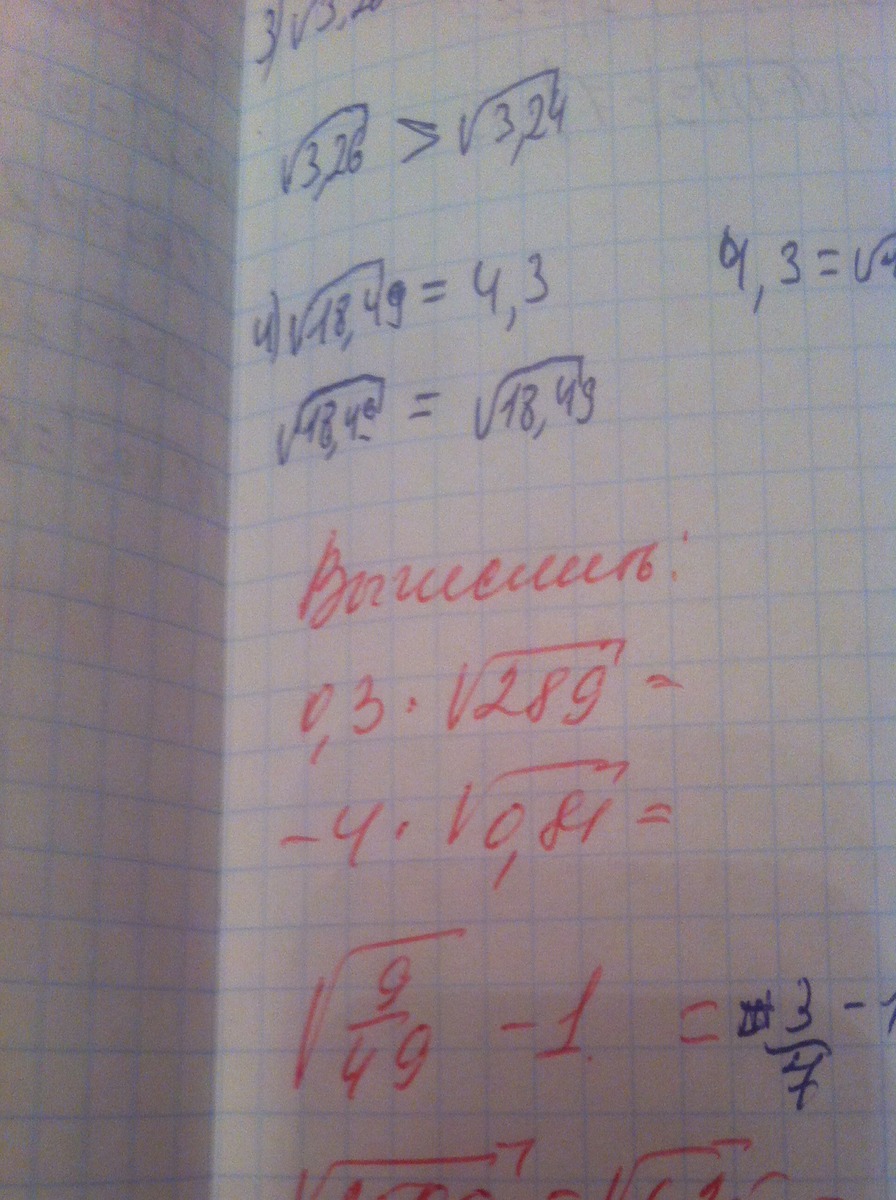 3) √3,26
√3,26 > √3,24
4) √18,49 = 4,3 4,3 = √
√18,49 = √18,49
Вычислить:
0,3 · √289 =
-4 · √0,81 =
√9/49 - 1 = 3/7 - 1